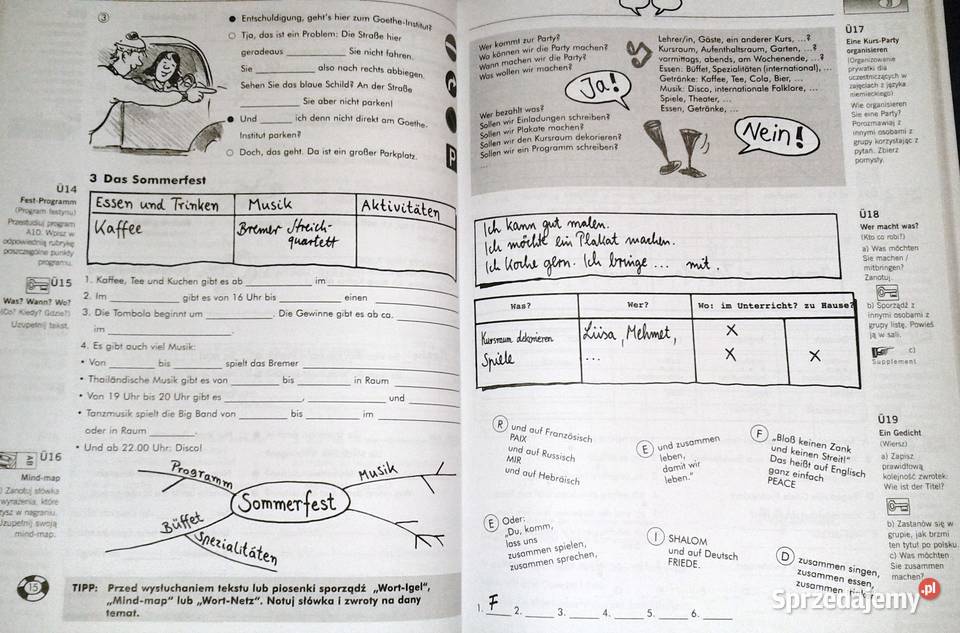 ③
● Entschuldigung, geht's hier zum Goethe-Institut?
○ Tja, das ist ein Problem: Die Straße hier
geradeaus ____________ Sie nicht fahren.
Sie ____________ also nach rechts abbiegen.
Sehen Sie das blaue Schild? An der Straße
____________ Sie aber nicht parken!
● Und ______ ich denn nicht direkt am Goethe-
Institut parken?
○ Doch, das geht. Da ist ein großer Parkplatz.
P
3 Das Sommerfest
Ü14
Fest-Programm
(Program festynu)
Przestudiuj program
A10. Wpisz w
odpowiednią rubrykę
poszczególne punkty
programu.
Essen und Trinken Musik Aktivitäten
Kaffee Bremer Streich-
quartett
Ü15
Was? Wann? Wo?
(Co? Kiedy? Gdzie?)
Uzupełnij tekst.
1. Kaffee, Tee und Kuchen gibt es ab ____________ im ____________
2. Im ____________ gibt es von 16 Uhr bis ____________ einen ____________
3. Die Tombola beginnt um ____________. Die Gewinne gibt es ab ca. ____________
im ____________.
4. Es gibt auch viel Musik:
• Von ______ bis ______ spielt das Bremer ____________
• Thailändische Musik gibt es von ________ bis ________ in Raum ________
• Von 19 Uhr bis 20 Uhr gibt es ____________, ____________ und ________
• Tanzmusik spielt die Big Band von ________ bis ________ im ________
oder in Raum ________.
• Und ab 22.00 Uhr: Disco!
Ü16
Mind-map
) Zanotuj słówka
wyrażenia, które
w nagraniu.
Uzupełnij swoją
mind-map.
Programm
Musik
Sommerfest
Büffet
Spezialitäten
15
TIPP: Przed wysłuchaniem tekstu lub piosenki sporządź „Wort-Igel",
„Mind-map" lub „Wort-Netz". Notuj słówka i zwroty na dany
temat.
Wer kommt zur Party?
Wo können wir die Party machen?
Wann machen wir die Party?
Was wollen wir machen?
Wer bezahlt was?
Sollen wir Einladungen schreiben?
Sollen wir Plakate machen?
Sollen wir den Kursraum dekorieren?
Sollen wir ein Programm schreiben?
...
Lehrer/in, Gäste, ein anderer Kurs, ...?
Kursraum, Aufenthaltsraum, Garten, ...?
vormittags, abends, am Wochenende, ...?
Essen: Büffet, Spezialitäten (international), ...
Getränke: Kaffee, Tee, Cola, Bier, ...
Musik: Disco, internationale Folklore, ...
Spiele, Theater, ...
Essen, Getränke, ...
Ja!
Nein!
Ü17
Eine Kurs-Party
organisieren
(Organizowanie
prywatki dla
uczestniczących w
zajęciach z języka
niemieckiego)
Wie organisieren
Sie eine Party?
Porozmawiaj z
innymi osobami z
grupy korzystając z
pytań. Zbierz
pomysły.
Ich kann gut malen.
Ich möchte ein Plakat machen.
Ich koche gern. Ich bringe ... mit.
Ü18
Wer macht was?
(Kto co robi?)
a) Was möchten
Sie machen /
mitbringen?
Zanotuj.
b) Sporządź z
innymi osobami z
grupy listę. Powieś
ją w sali.
c)
Supplement
Was? Wer? Wo: im Unterricht? zu Hause?
Kursraum dekorieren Liisa, Mehmet, X
Spiele ... X X
Ü19
Ein Gedicht
(Wiersz)
a) Zapisz
prawidłową
kolejność zwrotek:
Wie ist der Titel?
b) Zastanów się w
grupie, jak brzmi
ten tytuł po polsku.
c) Was möchten
Sie zusammen
machen?
R und auf Französisch
PAIX
und auf Russisch
MIR
und auf Hebräisch
E und zusammen
leben,
damit wir
leben."
F „Bloß keinen Zank
und keinen Streit!"
Das heißt auf Englisch
ganz einfach
PEACE
E Oder:
„Du, komm,
lass uns
zusammen spielen,
zusammen sprechen,
I SHALOM
und auf Deutsch
FRIEDE.
D zusammen singen,
zusammen essen,
zusammen
1. F 2. ____ 3. ____ 4. ____ 5. ____ 6. ____
Sprzedajemy.pl